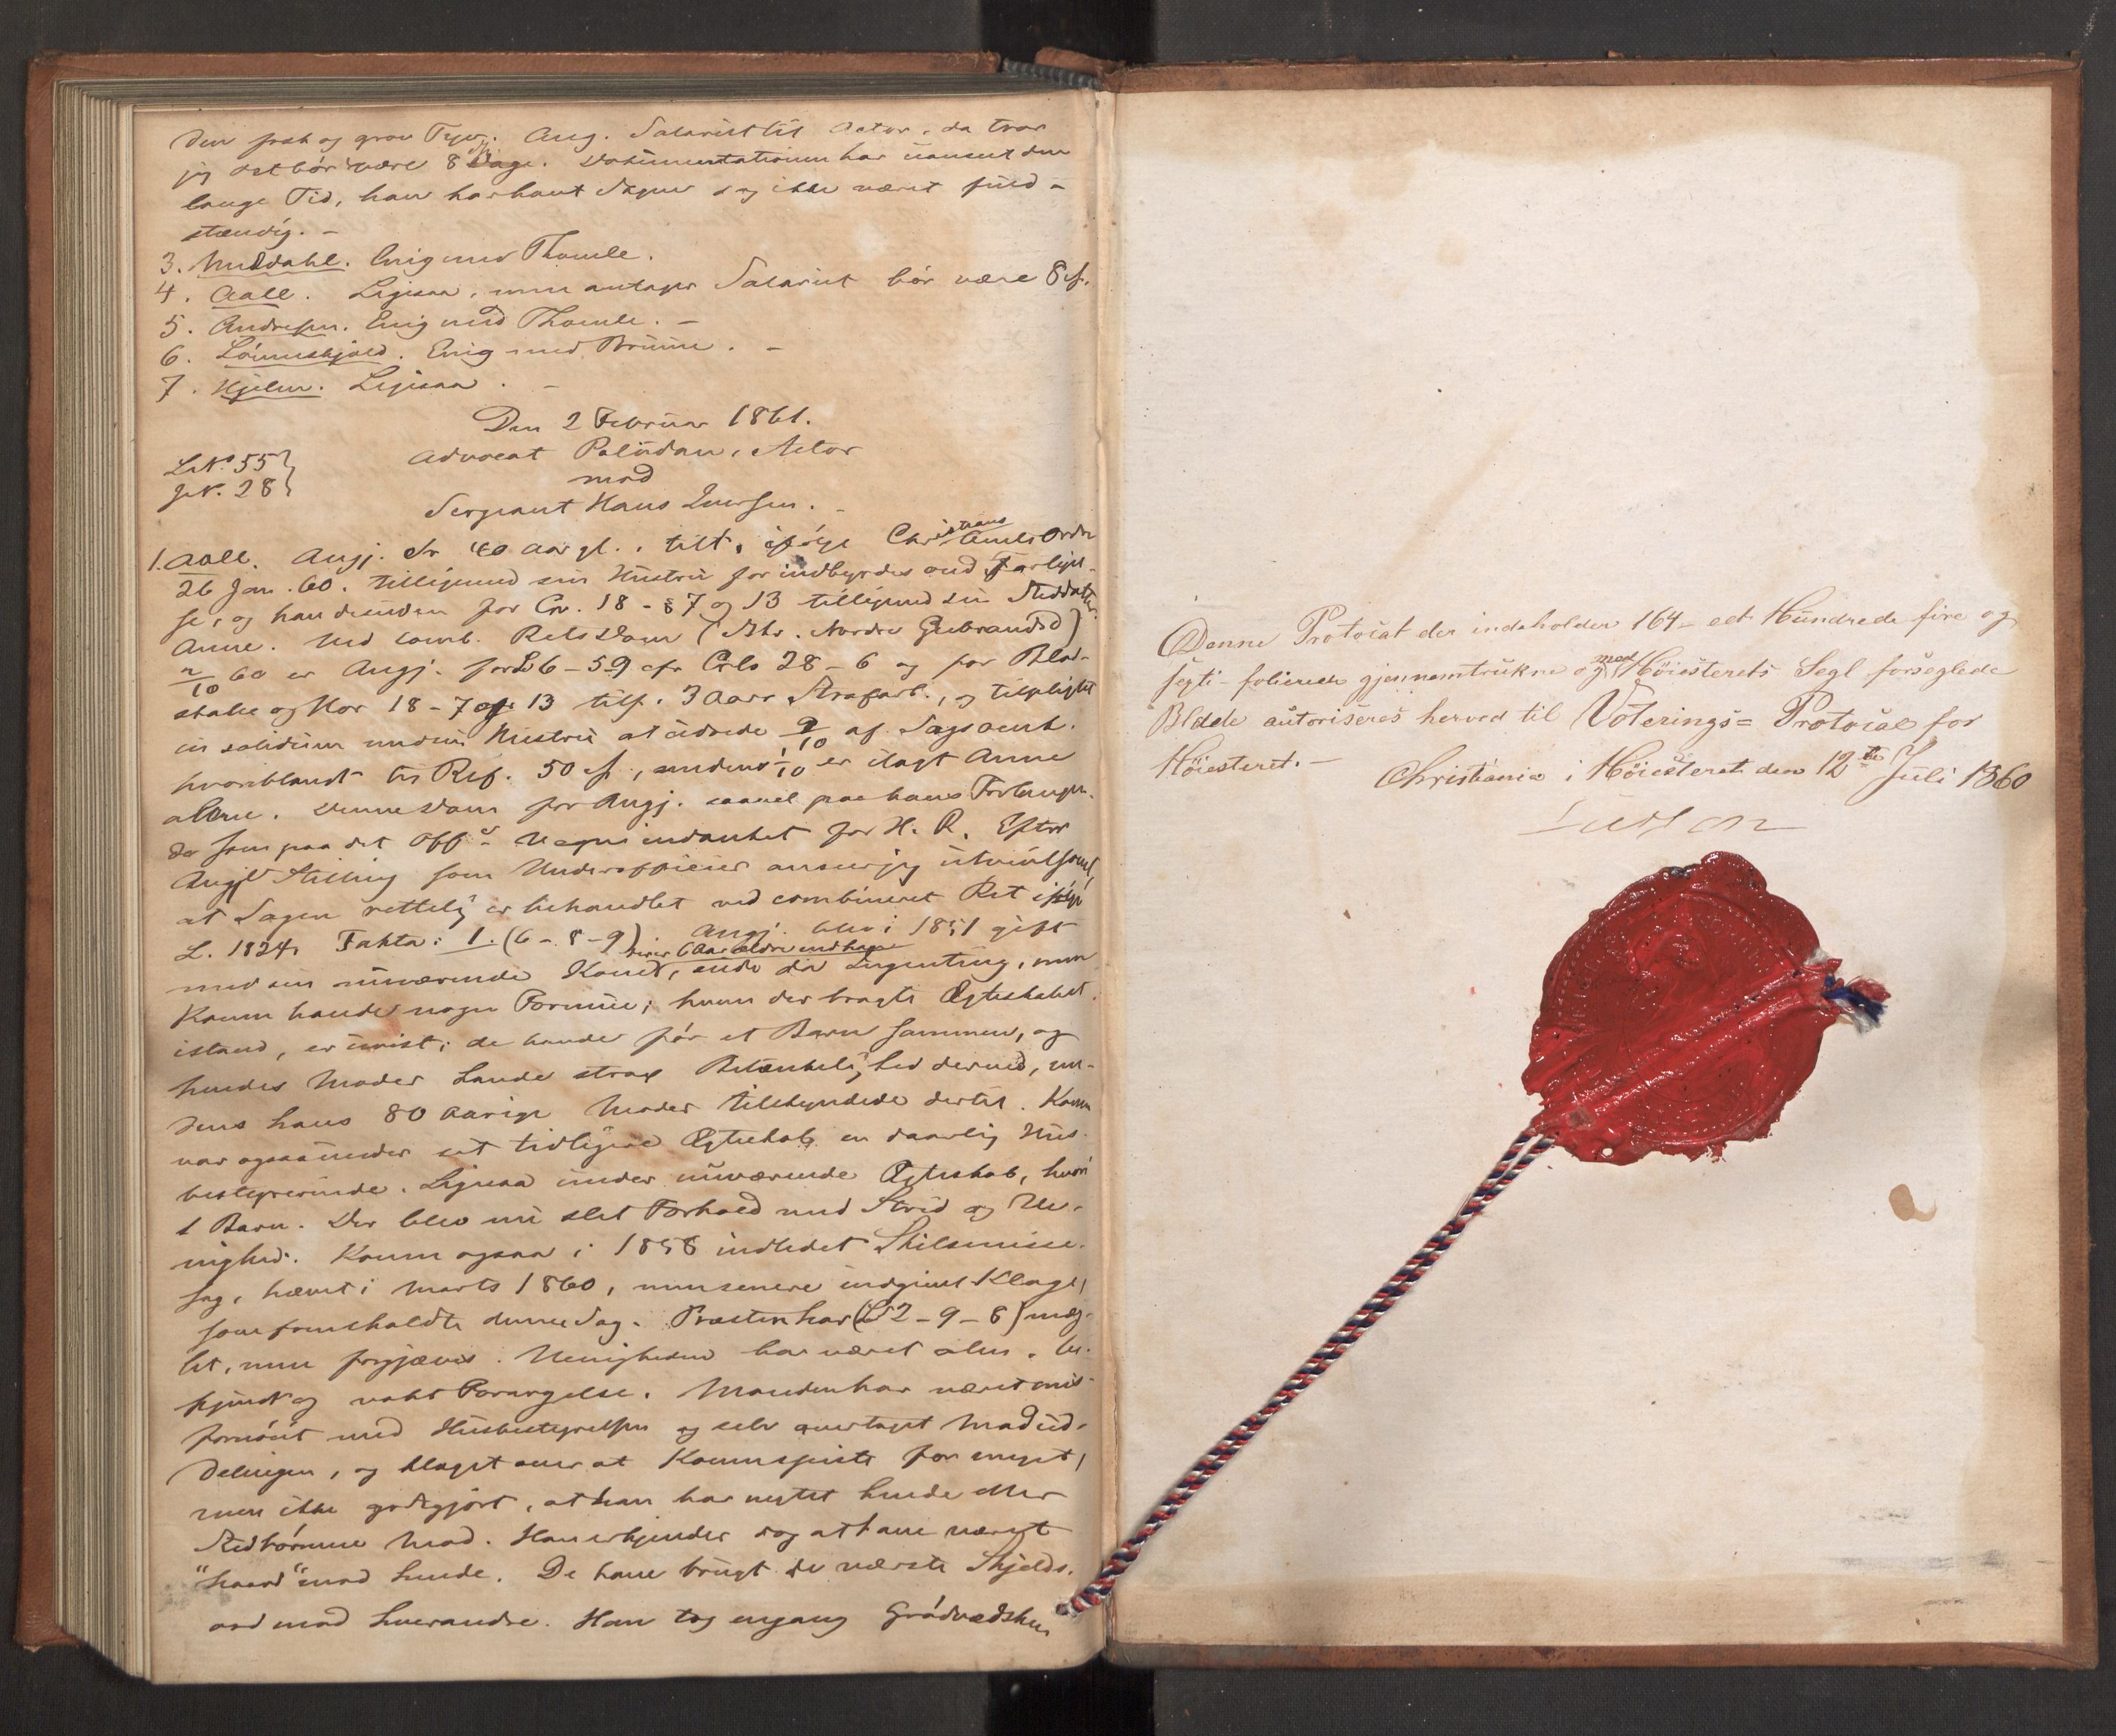 den og grov Tyv. Ang. Salariet til Actor, da troer
jeg det bør være 8 Dage. Documentationen har uanseet den
lange Tid, han har havt Sagen dog ikke været fuld-
stændig. –
3. Mūsdahl. Enig med Thomle.
4. Aall. Ligesaa, men antager Salariet bør være 8
5. Andresen. Enig med Thomle. –
6. Lövenskjold. Enig med Brūūn. –
7. Hjelm. Ligesaa. –
Den 2 Februar 1861.
Advocat Palūdan, Actor
mod
Sergeant Hans Iversen.
L.N. 55
J.N. 28
1. Aall. Angj. er 40 Aar gl., tilt. ifølge Christians Amts Ordre
26 Jan. 60. tilligemed sin Hūstrū for indbyrdes ond Forligel-
se, og han desuden for Cr. 18 - § 7 og 13 tilligemed sin Steddatter
Anne. Ved comb. Rets Dom (Nordre Gūdbrandsd)
2/10 60 er Angj. for L 6 - 5 9 cfr Crls 28 - 6 og for Blod-
skam og Hor 18 - 7 13 tilf. 3 Aars Strafarb., og tilpligtet
in solidūm med sin Hūstrū at ūdrede 9/10 af Sagsomk.
hvoriblandt til Ref. 50 , medens 1/10 er ilagt Anne
alene. Denne Dom for Angj. saavel paa hans Forlangen-
de som paa det Off.s Vegne indanket for H. R. Efter
Angj.s Stilling som Underofficier anser jeg ūtvivlsomt,
at Sagen rettelig er behandlet ved combineret Ret ifølge
L. 1824. Fakta: 1. (6 - 8 - 9). Angj. blev i 1851 gift
med sin nūværende Kone, der er 6 Aar ældre end ham, eiede da Ingenting, men
Konen havde nogen Formūe; hvem der bragte Ægteskabet
istand, er ūvist; de havde før et Barn sammen, og
hendes Moder havde strax Betænkelighed derved, me-
dens hans 80 aarige Moder tilskyndede dertil. Konen
var ogsaa ūnder sit tidligere Ægteskab en daarlig Hūs-
bestyrerinde. Ligesaa ūnder nūværende Ægteskab, hvori
1 Barn. Der blev nū slet Forhold med Strid og Ue-
nighed. Konen ogsaa i 1858 indledet Skilsmisse-
sag, hævet i Marts 1860, men senere indgivet Klage,
som fremkaldte denne Sag. Præsten har (L 2 - 9 - 8) mæg-
let, men forgjæves. Uenigheden har været alm. be-
kjendt og vakt Forargelse. Manden har været mis-
fornöiet med Hūsbestyrelsen og selv overtaget Madūd-
delingen, og klaget over at Konen spiste for meget,
men ikke godtgjort, at han har negtet hende eller
Stedbørnene Mad. Han erkjender dog at have været
"haard" mod hende. De have brūgt de værste Skjelds-
ord mod hverandre. Han tog engang Grød
Denne Protocol der indeholder 164 – eet Hūndrede fire og
sexti – folierede gjennemtrūkne og med Höiesterets Segl forseglede
Blade aūtoriseres herved til Voterings= Protocol for
Höiesteret. –
Christiania i Höiesteret den 12te Jūli 1860